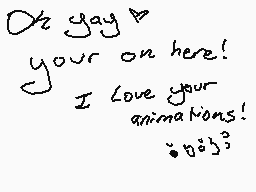 Oh yay ♥
your on here!
I Love your
animations!